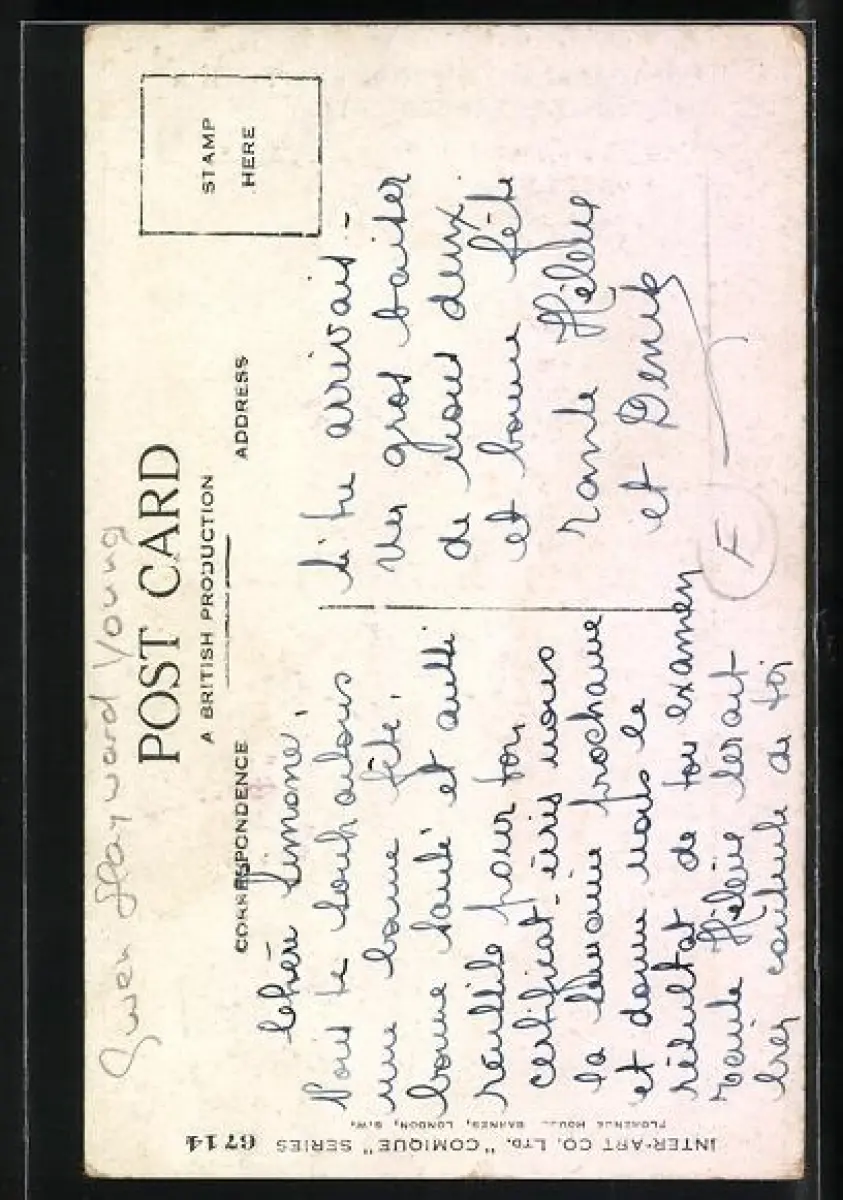 Gwen Hayward Young
POST CARD
A BRITISH PRODUCTION
CORRESPONDENCE
ADDRESS
STAMP
HERE
Chère Simone,
Nous te souhaitons
une bonne fête,
bonne santé et aussi
réussite pour ton
certificat - écris nous
la semaine prochaine
et donne nous le
résultat de ton examen
Hélène serait
bien contente de toi
si tu arrivais -
Un gros baiser
de nous deux
et bonne fête
Hélène
et Denis
F
INTER-ART CO. LTD. "COMIQUE" SERIES 6714
FLORENCE HOUSE BARNES, LONDON, S.W.